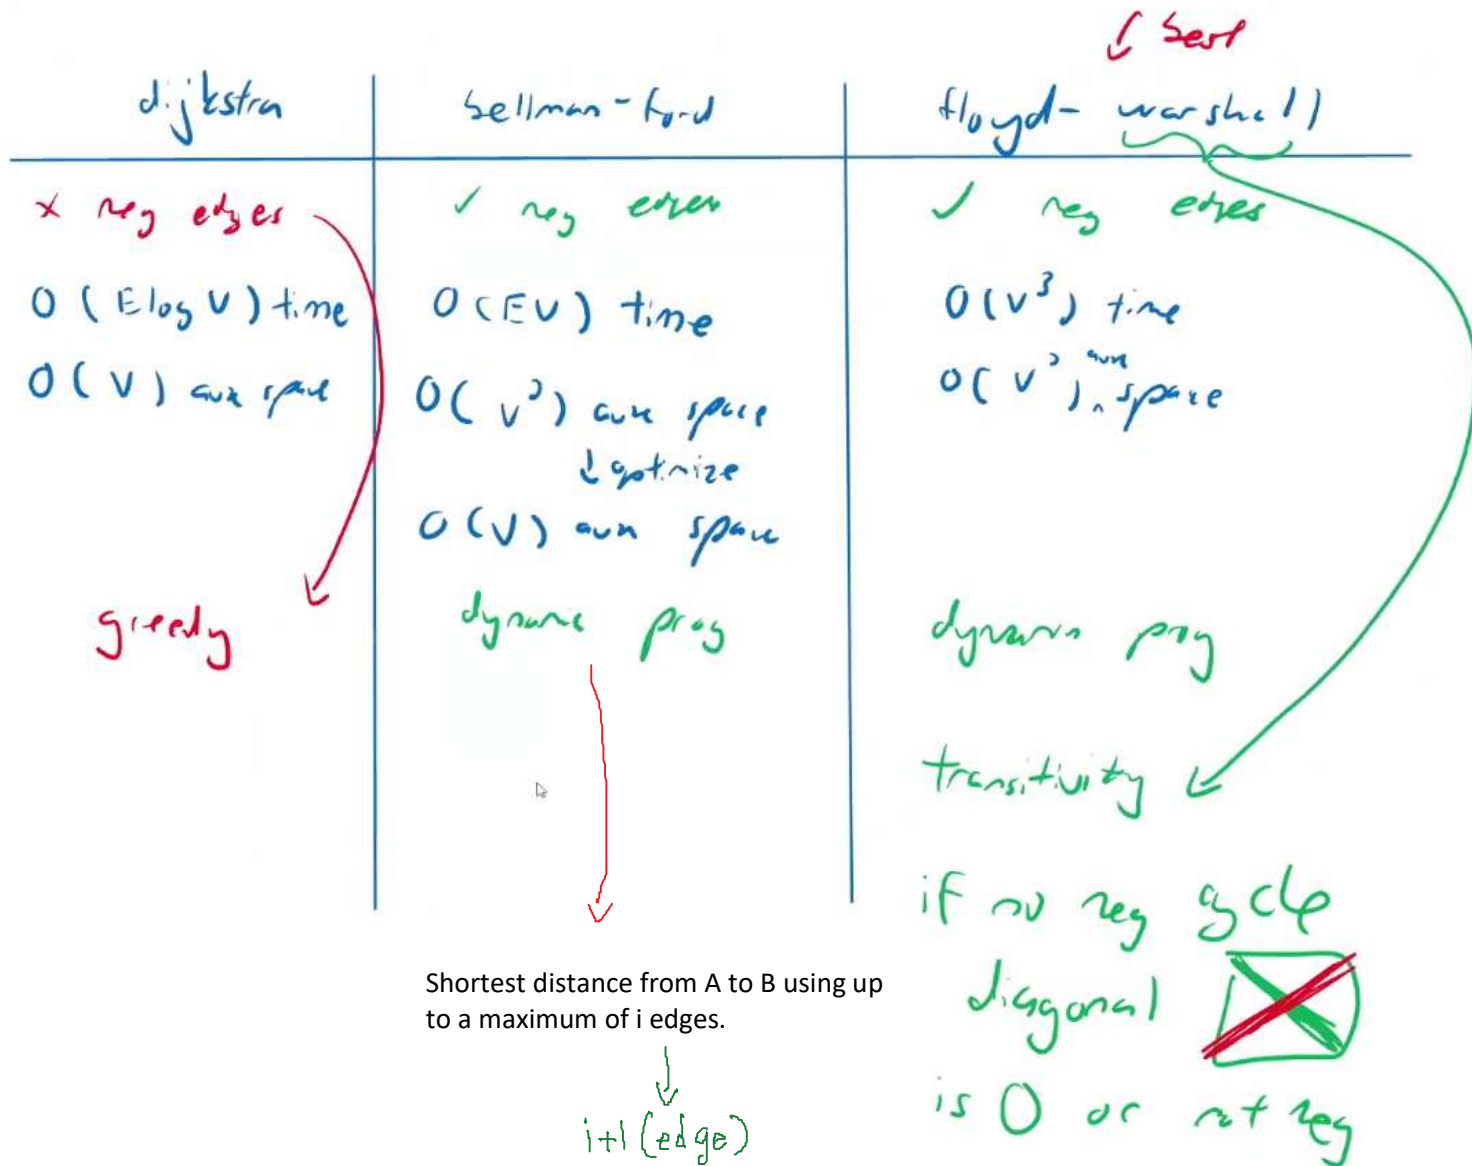 ↓ best
dijkstra
bellman-ford
floyd-warshall
× neg edges
✓ neg edges
✓ neg edges
O(E log V) time
O(EV) time
O(V³) time
O(V) aux space
O(V²) aux space
O(V²) aux space
↓ optimize
O(V) aux space
greedy
dynamic prog
dynamic prog
transitivity
if no neg cycle
diagonal
is 0 or not neg
Shortest distance from A to B using up
to a maximum of i edges.
i+1 (edge)